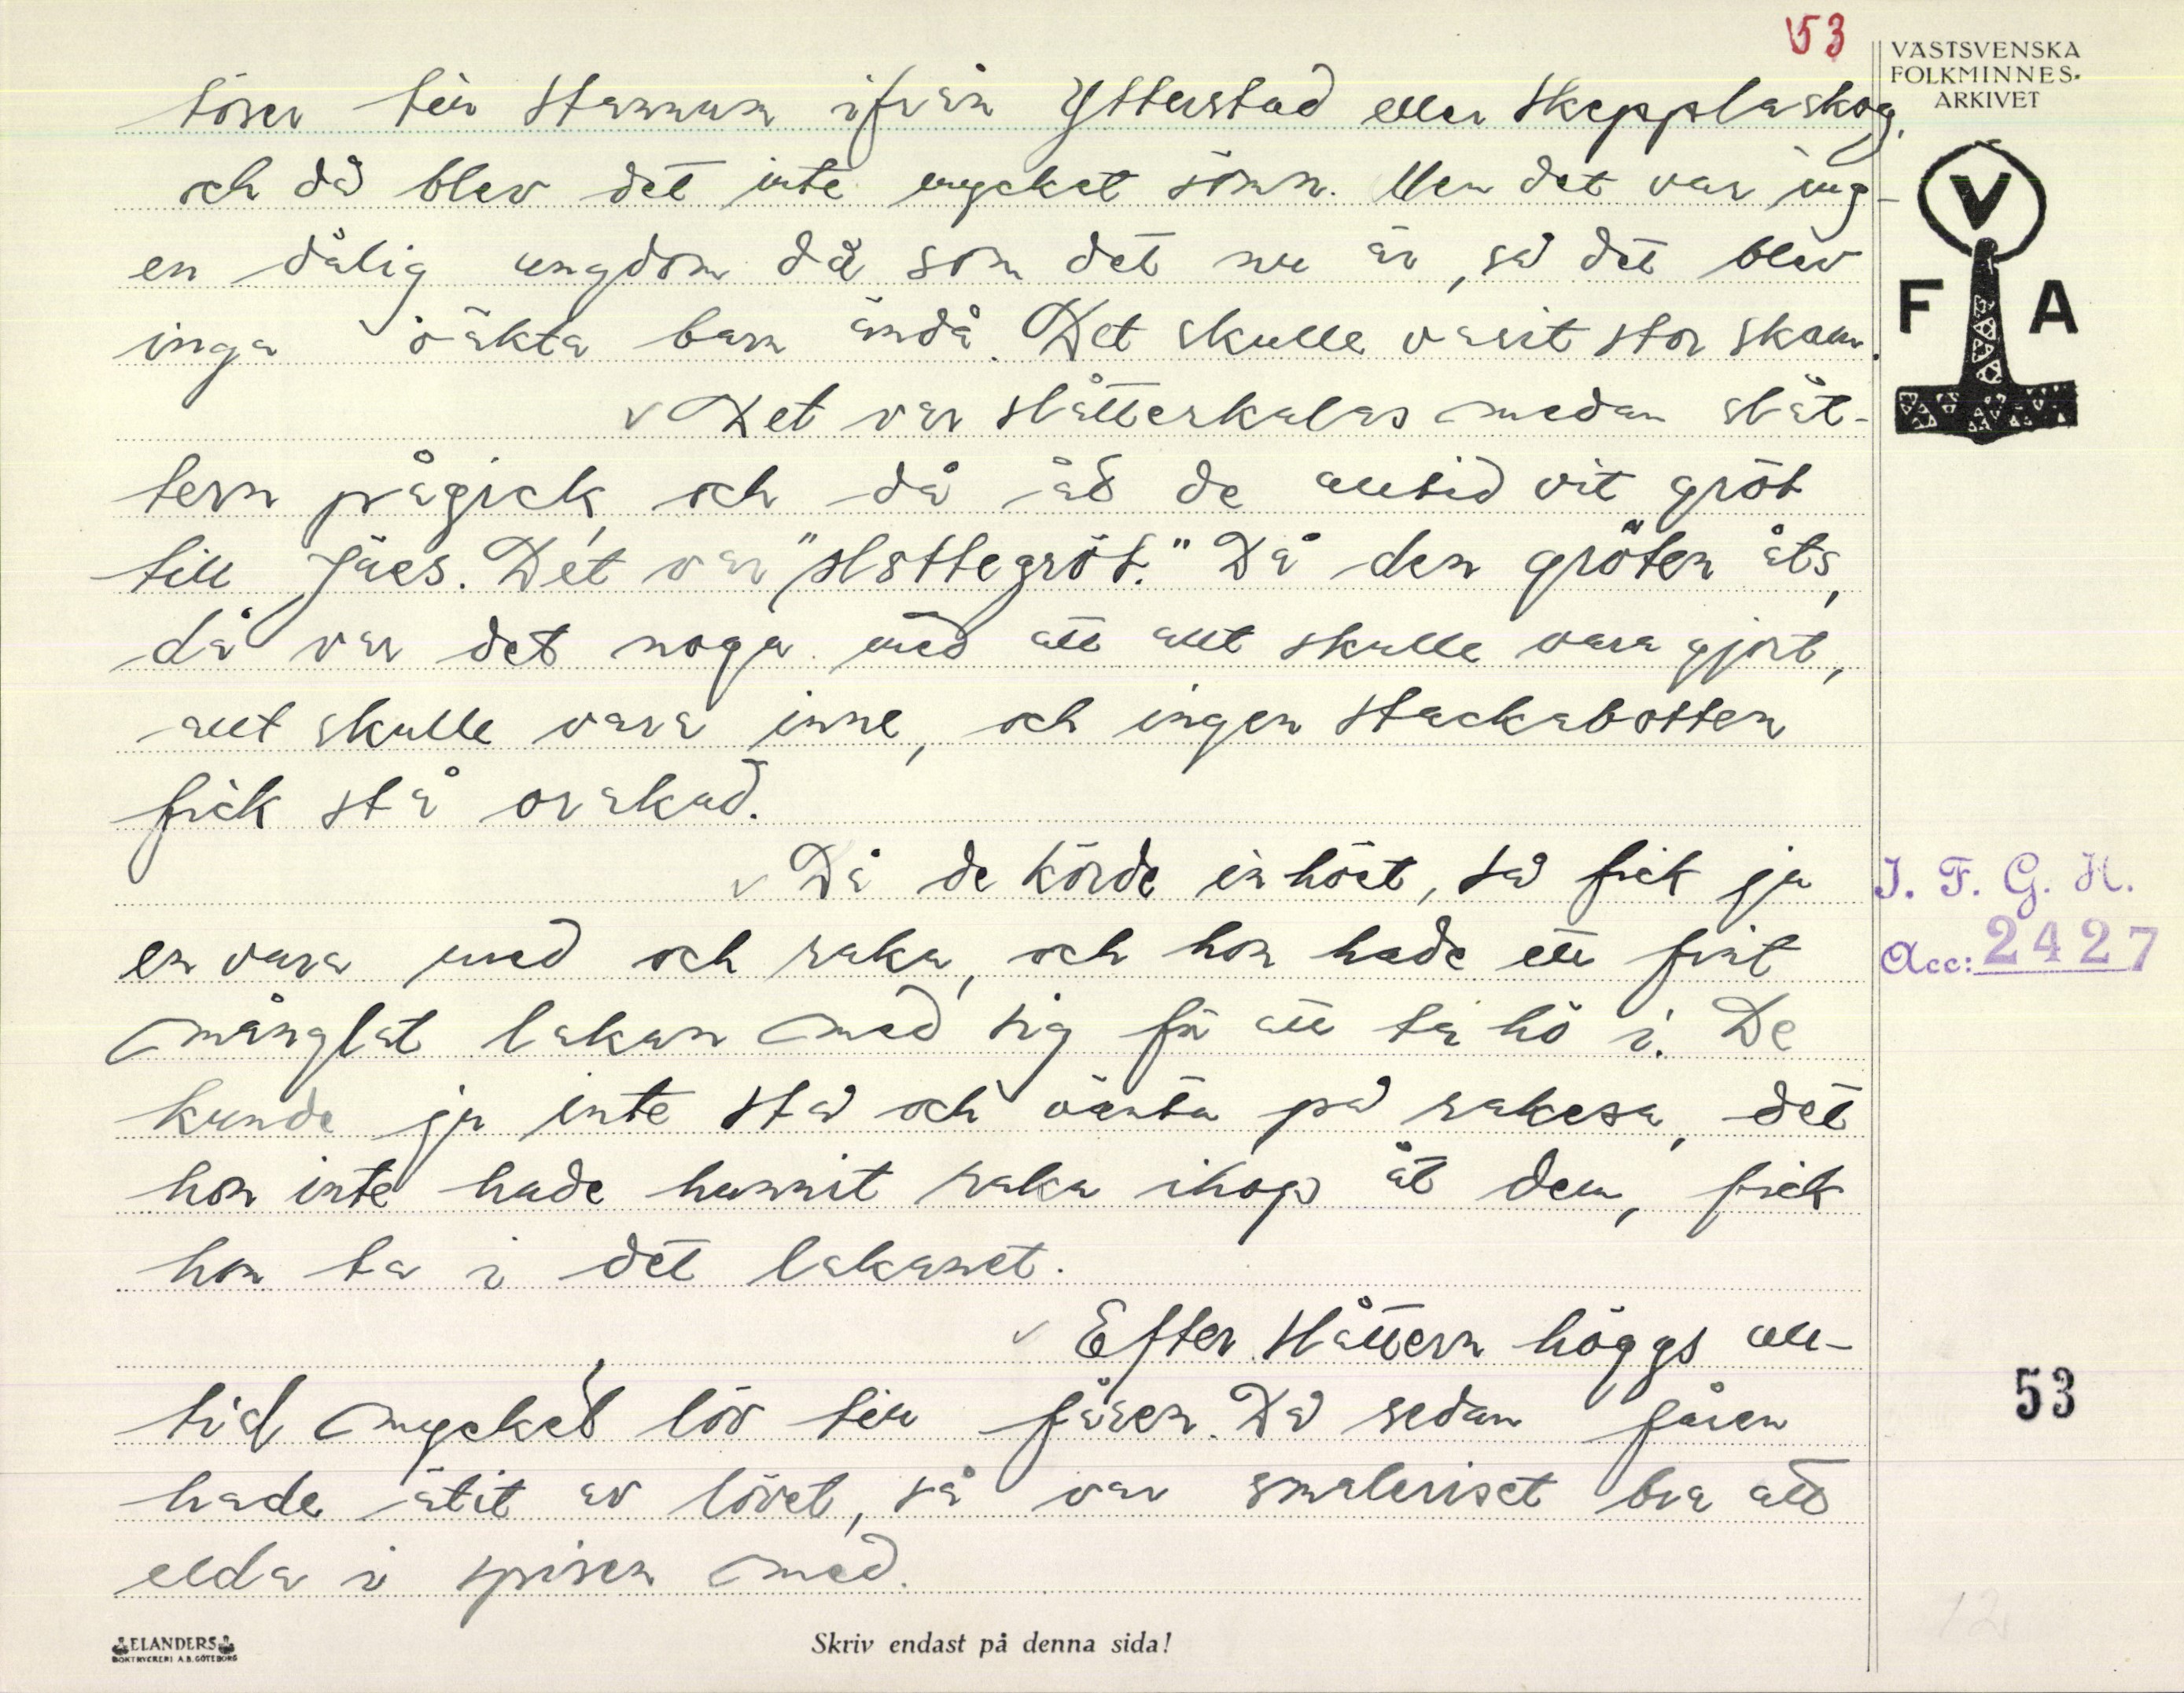 53
VÄSTSVENSKA
FOLKMINNES-
ARKIVET
töser till Stannum ifrån Ytterstad eller Skepplaskog,
och då blev det inte mycket sömn. Men det var ing-
en dålig ungdom då som det nu är, så det blev
inga oäkta barn ändå. Det skulle varit stor skam.
V
F A
Det var slåtterkalas medan slåt-
tern pågick, och då åt de alltid vit gröt
till Jäes. Det var "slottegröt." Då den gröten åts,
då var det noga med att allt skulle vara gjort,
allt skulle vara inne, och ingen stackabotten
fick stå orakad.
Då de körde in höet, så fick ju
en vara med och raka, och hon hade ett fint
månglat lakan med sig för att ta hö i. De
kunde ju inte stå och vänta på rakesa, det
hon inte hade hunnit raka ihop åt dem, fick
hon ta i det lakanet.
I. F. G. H.
Acc: 2427
Efter slåttern höggs all-
tid mycket löv till fåren. Då sedan fåren
hade ätit av lövet, så var smaleriset bra att
elda i spisen med.
53
12
ELANDERS
BOKTRYCKERI A.B. GÖTEBORG
Skriv endast på denna sida!